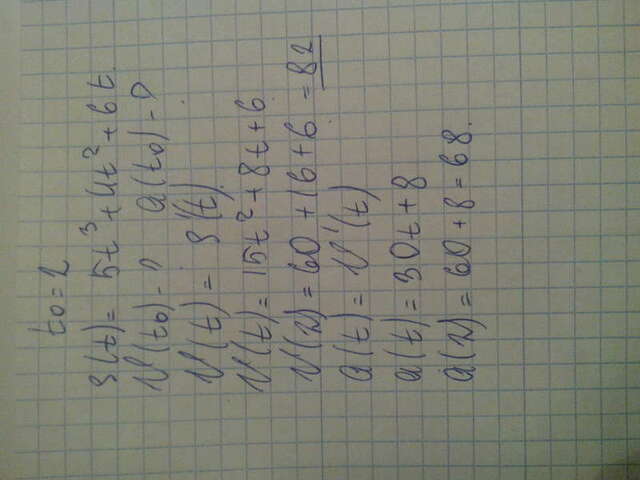 t₀ = 2
S(t) = 5t³ + 4t² + 6t.
V(t₀) - ? a(t₀) - ?
V(t) = S'(t).
V(t) = 15t² + 8t + 6.
V(2) = 60 + 16 + 6 = 82
a(t) = V'(t)
a(t) = 30t + 8
a(2) = 60 + 8 = 68.